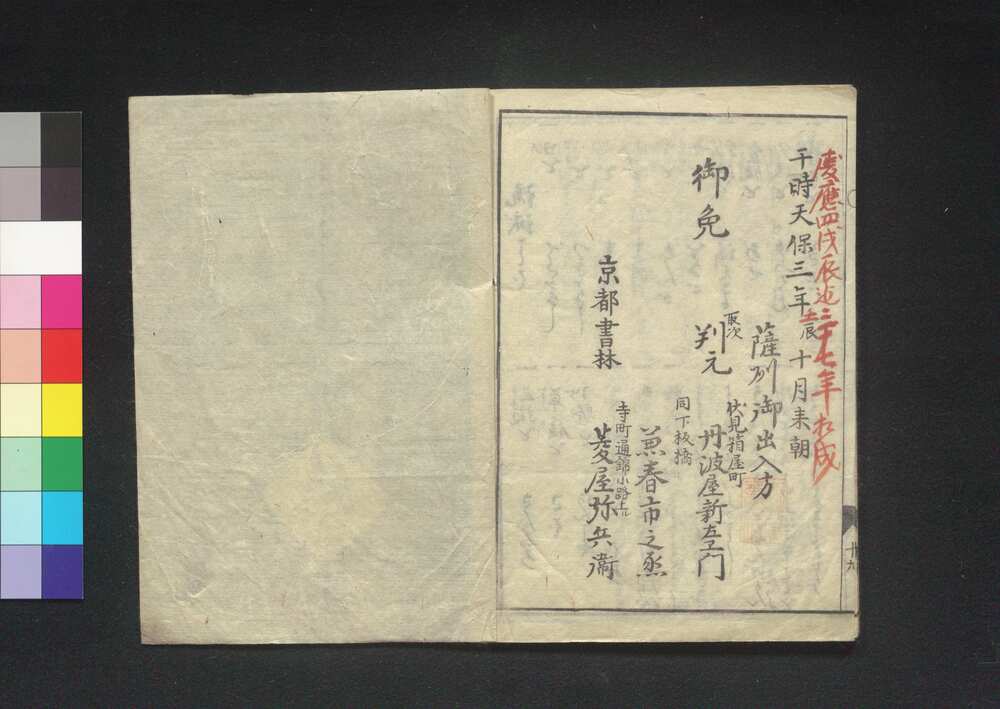 慶應四戊辰迄三十七年相成
干時天保三年壬辰十月来朝
薩州御出入方
取次
伏見箱屋町
御免 判元 丹波屋新左エ門
同下板橋
兼春市之丞
寺町通錦小路上ル
京都書林 菱屋弥兵衛
廿九